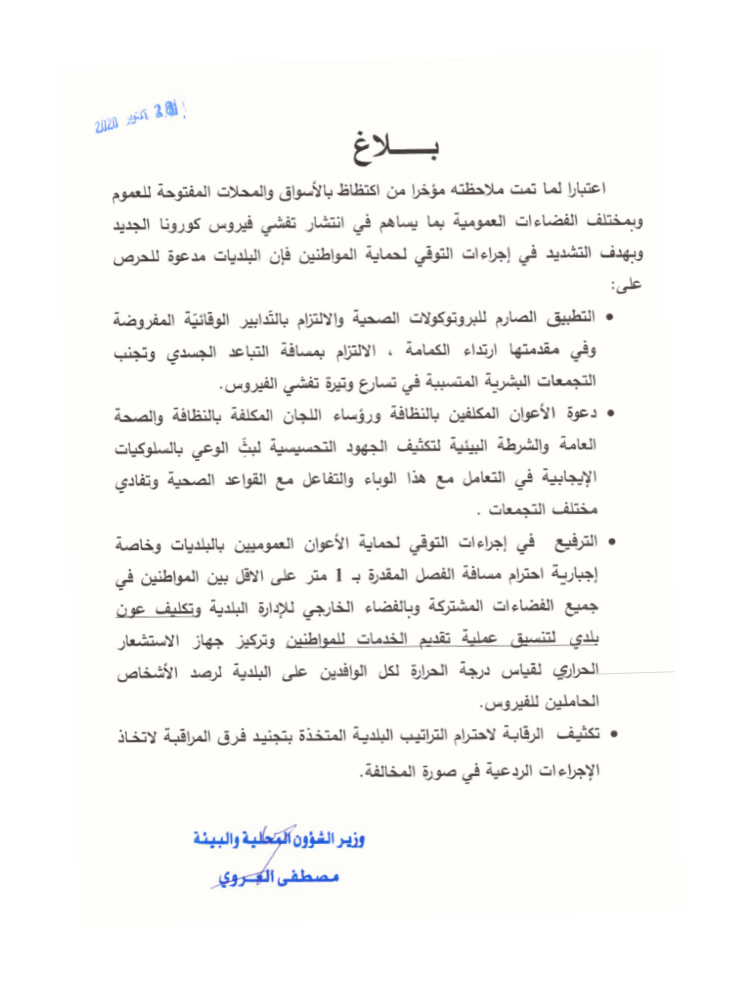 أكتوبر 2020
بــــلاغ
اعتبارا لما تمت ملاحظته مؤخرا من اكتظاظ بالأسواق والمحلات المفتوحة للعموم
وبمختلف الفضاءات العمومية بما يساهم في انتشار تفشي فيروس كورونا الجديد
وبهدف التشديد في إجراءات التوقي لحماية المواطنين فإن البلديات مدعوة للحرص
على:
• التطبيق الصارم للبروتوكولات الصحية والالتزام بالتّدابير الوقائيّة المفروضة
وفي مقدمتها ارتداء الكمامة ، الالتزام بمسافة التباعد الجسدي وتجنب
التجمعات البشرية المتسببة في تسارع وتيرة تفشي الفيروس.
• دعوة الأعوان المكلفين بالنظافة ورؤساء اللجان المكلفة بالنظافة والصحة
العامة والشرطة البيئية لتكثيف الجهود التحسيسية لبثّ الوعي بالسلوكيات
الإيجابية في التعامل مع هذا الوباء والتفاعل مع القواعد الصحية وتفادي
مختلف التجمعات .
• الترفيع في إجراءات التوقي لحماية الأعوان العموميين بالبلديات وخاصة
إجبارية احترام مسافة الفصل المقدرة بـ 1 متر على الاقل بين المواطنين في
جميع الفضاءات المشتركة وبالفضاء الخارجي للإدارة البلدية وتكليف عون
بلدي لتنسيق عملية تقديم الخدمات للمواطنين وتركيز جهاز الاستشعار
الحراري لقياس درجة الحرارة لكل الوافدين على البلدية لرصد الأشخاص
الحاملين للفيروس.
• تكثيف الرقابة لاحترام التراتيب البلدية المتخذة بتجنيد فرق المراقبة لاتخاذ
الإجراءات الردعية في صورة المخالفة.
وزير الشؤون المحلية والبيئة
مصطفى العروي